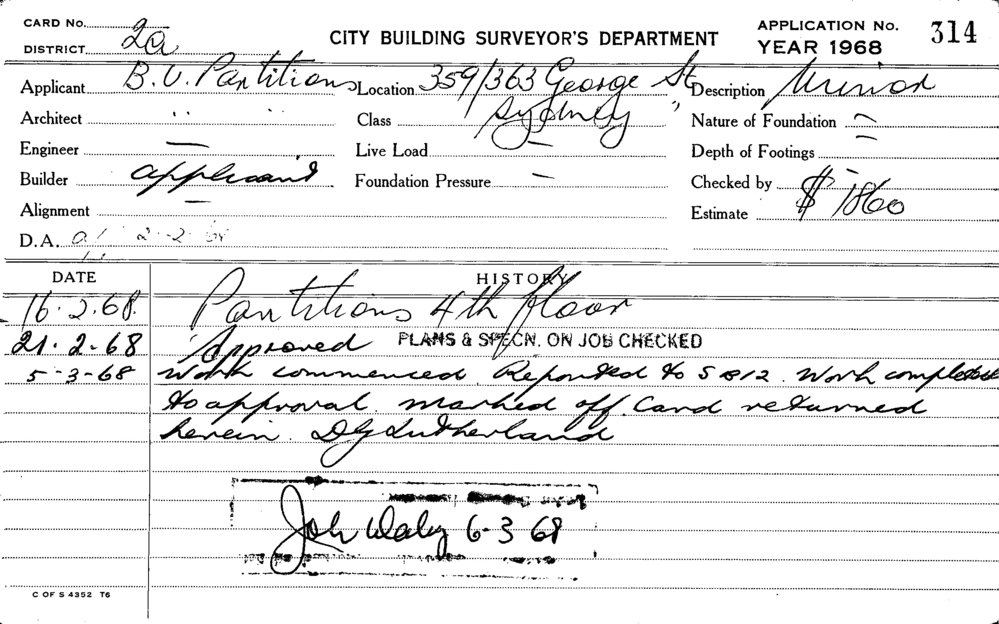 CARD No. APPLICATION No. 314
DISTRICT 2a CITY BUILDING SURVEYOR'S DEPARTMENT YEAR 1968
Applicant B.V. Partitions Location 359/363 George St Description Minor
Architect " Class Sydney " Nature of Foundation —
Engineer — Live Load — Depth of Footings —
Builder applicant Foundation Pressure — Checked by
Alignment — Estimate $ 1860
D.A. 2-2-68
DATE HISTORY
16.2.68. Partitions 4th floor
21.2-68 Approved PLANS & SPECN. ON JOB CHECKED
5-3-68 Work commenced. Reported to S 812. Work completed
to approval. marked off. Card returned
herein. DG Sutherland
6-3 68
C OF S 4352 T6